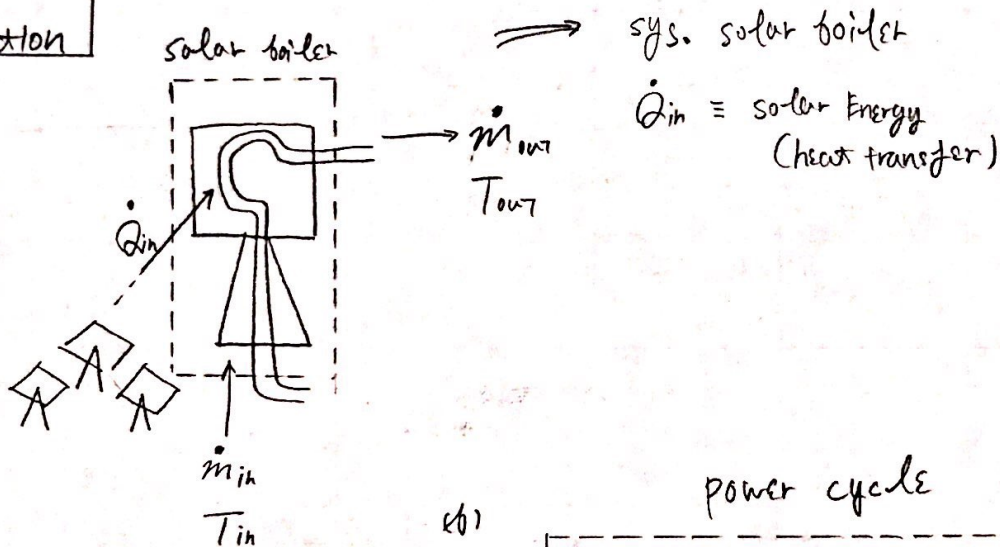 solar boiler
sys. solar boiler
Q̇in ≡ solar Energy
(heat transfer)
ṁout
Tout
Q̇in
ṁin
Tin
(b)
power cycle